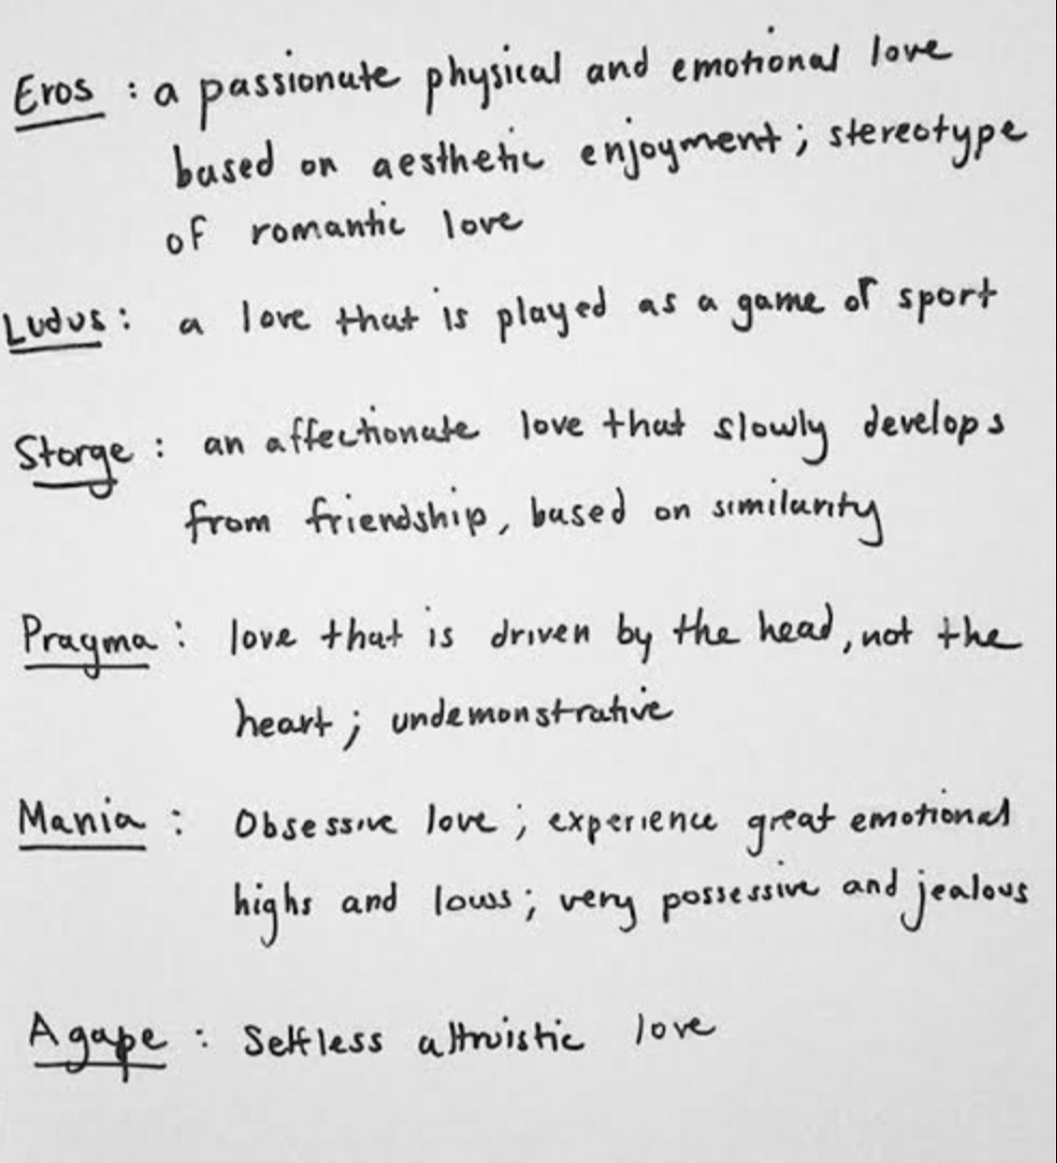 Eros : a passionate physical and emotional love
based on aesthetic enjoyment; stereotype
of romantic love
Ludus: a love that is played as a game or sport
Storge : an affectionate love that slowly develops
from friendship, based on similarity
Pragma : love that is driven by the head, not the
heart; undemonstrative
Mania : Obsessive love; experience great emotional
highs and lows; very possessive and jealous
Agape : Selfless altruistic love